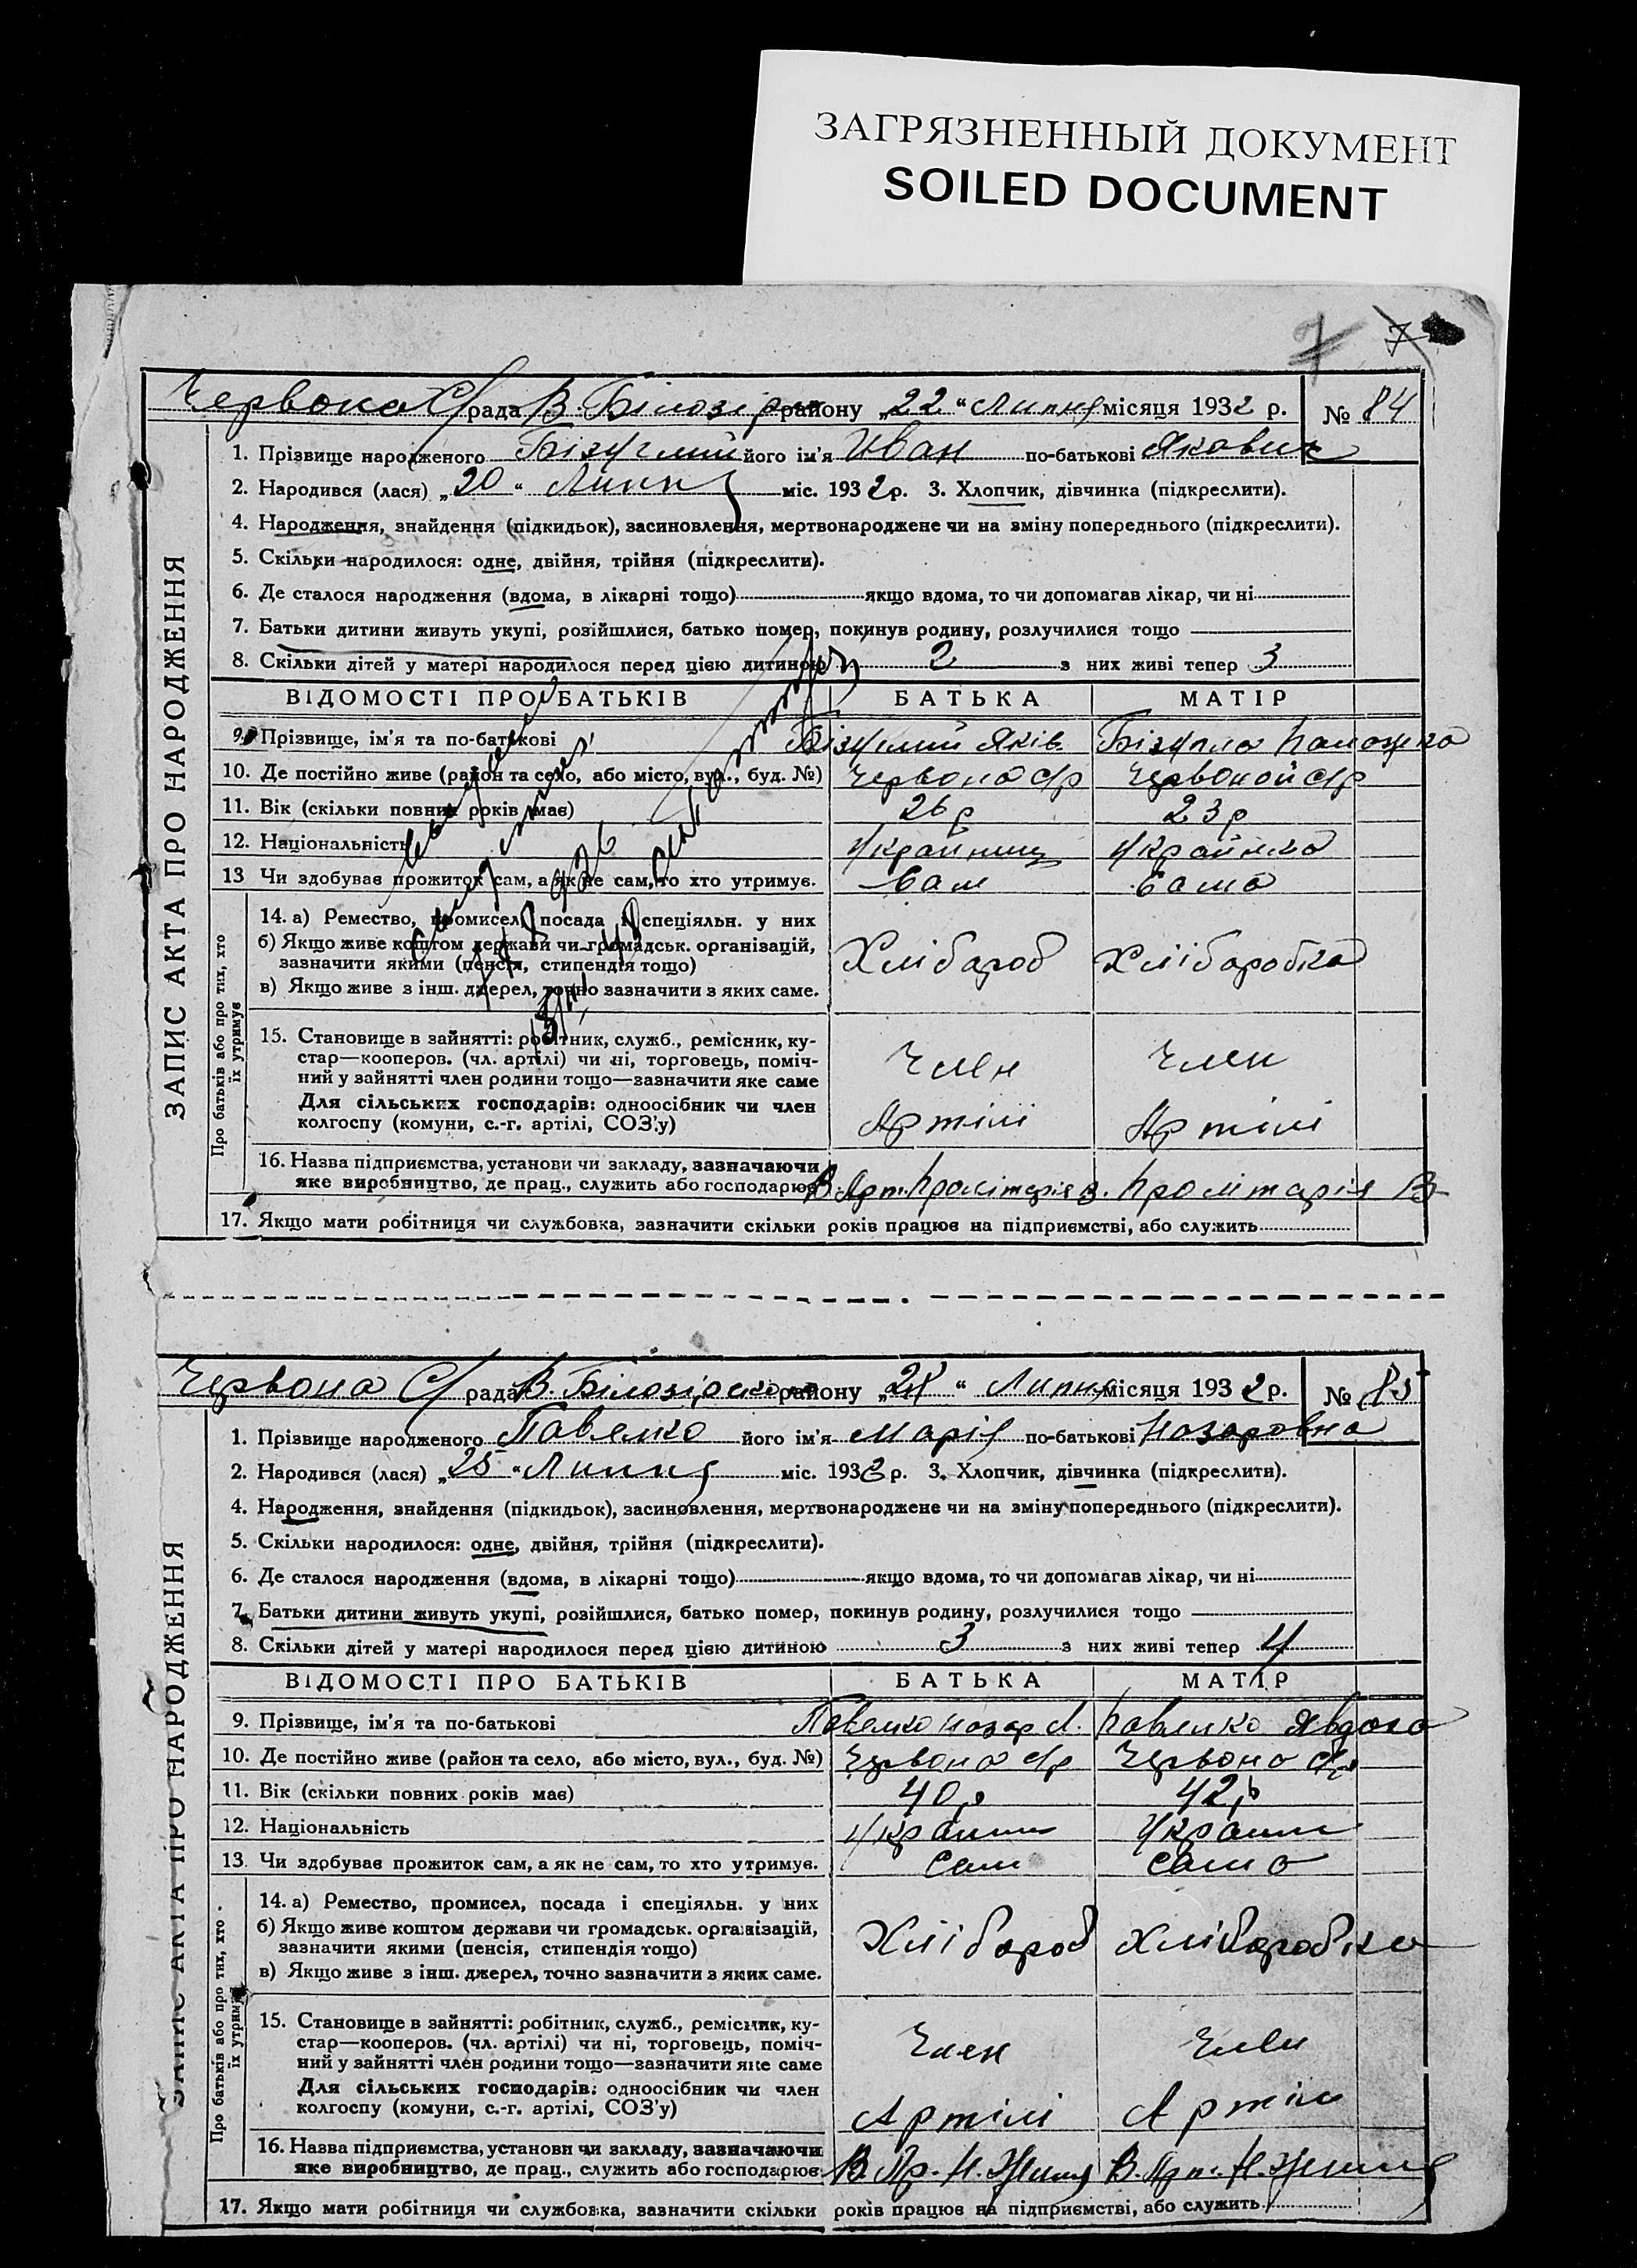 ЗАГРЯЗНЕННЫЙ ДОКУМЕНТ
SOILED DOCUMENT
7 7
Червона С/рада В. Білозірск району „22“ Липня місяця 1932 р. № 84
1. Прізвище народженого його ім'я Иван по-батькові Якович
2. Народився (лася) „20“ Липня міс. 1932 р. 3. Хлопчик, дівчинка (підкреслити).
4. Народження, знайдення (підкидьок), засиновлення, мертвонароджене чи на зміну попереднього (підкреслити).
5. Скільки народилося: одне, двійня, трійня (підкреслити).
6. Де сталося народження (вдома, в лікарні тощо) якщо вдома, то чи допомагав лікар, чи ні
7. Батьки дитини живуть укупі, розійшлися, батько помер, покинув родину, розлучилися тощо
8. Скільки дітей у матері народилося перед цією дитиною 2 з них живі тепер 3
ЗАПИС АКТА ПРО НАРОДЖЕННЯ
ВІДОМОСТІ ПРО БАТЬКІВ БАТЬКА МАТІР
9. Прізвище, ім'я та по-батькові Яків
10. Де постійно живе (район та село, або місто, вул., буд. №) Червона с/р Червоной с/р
11. Вік (скільки повних років має) 26 р 23 р
12. Національність Українец Українка
13 Чи здобував прожиток сам, а як не сам, то хто утримує. Сам Сама
Про батьків або про тих, хто їх утримує
14. а) Ремество, промисел, посада і спеціяльн. у них
б) Якщо живе коштом держави чи громадськ. організацій,
зазначити якими (пенсія, стипендія тощо) Хлібароб Хліібаробка
в) Якщо живе з інш. джерел, точно зазначити з яких саме.
15. Становище в зайнятті: робітник, служб., ремісник, ку-
стар—кооперов. (чл. артілі) чи ні, торговець, поміч- Член Член
ний у зайнятті член родини тощо—зазначити яке саме
Для сільських господарів: одноосібник чи член
колгоспу (комуни, с.-г. артілі, СОЗ'у) Артілі Артілі
16. Назва підприємства, установи чи закладу, зазначаючи
яке виробництво, де прац., служить або господарює В. Арт. Пролітарія В. Пролітарія
17. Якщо мати робітниця чи службовка, зазначити скільки років працює на підприємстві, або служить
Червона С/рада В. Білозірск району „28“ Липня місяця 1932 р. № 85
1. Прізвище народженого Павленко його ім'я Марія по-батькові Назаровна
2. Народився (лася) „25“ Липня міс. 1932 р. 3. Хлопчик, дівчинка (підкреслити).
4. Народження, знайдення (підкидьок), засиновлення, мертвонароджене чи на зміну попереднього (підкреслити).
5. Скільки народилося: одне, двійня, трійня (підкреслити).
6. Де сталося народження (вдома, в лікарні тощо) якщо вдома, то чи допомагав лікар, чи ні
7. Батьки дитини живуть укупі, розійшлися, батько помер, покинув родину, розлучилися тощо
8. Скільки дітей у матері народилося перед цією дитиною 3 з них живі тепер 4
ЗАПИС АКТА ПРО НАРОДЖЕННЯ
ВІДОМОСТІ ПРО БАТЬКІВ БАТЬКА МАТІР
9. Прізвище, ім'я та по-батькові Павленко Назар Л. Павленко Явдоха
10. Де постійно живе (район та село, або місто, вул., буд. №) Червона с/р Червона с/р
11. Вік (скільки повних років має) 40 р 42 р
12. Національність
13. Чи здобував прожиток сам, а як не сам, то хто утримує. Сам Сама
Про батьків або про тих, хто їх утримує
14. а) Ремество, промисел, посада і спеціяльн. у них
б) Якщо живе коштом держави чи громадськ. організацій,
зазначити якими (пенсія, стипендія тощо) Хліібароб Хлібаробка
в) Якщо живе з інш. джерел, точно зазначити з яких саме.
15. Становище в зайнятті: робітник, служб., ремісник, ку-
стар—кооперов. (чл. артілі) чи ні, торговець, поміч- Член Член
ний у зайнятті член родини тощо—зазначити яке саме
Для сільських господарів: одноосібник чи член
колгоспу (комуни, с.-г. артілі, СОЗ'у) Артілі Артілі
16. Назва підприємства, установи чи закладу, зазначаючи
яке виробництво, де прац., служить або господарює. В. Ар. Н. Життя В. Арт. Н. Життя
17. Якщо мати робітниця чи службовка, зазначити скільки років працює на підприємстві, або служить